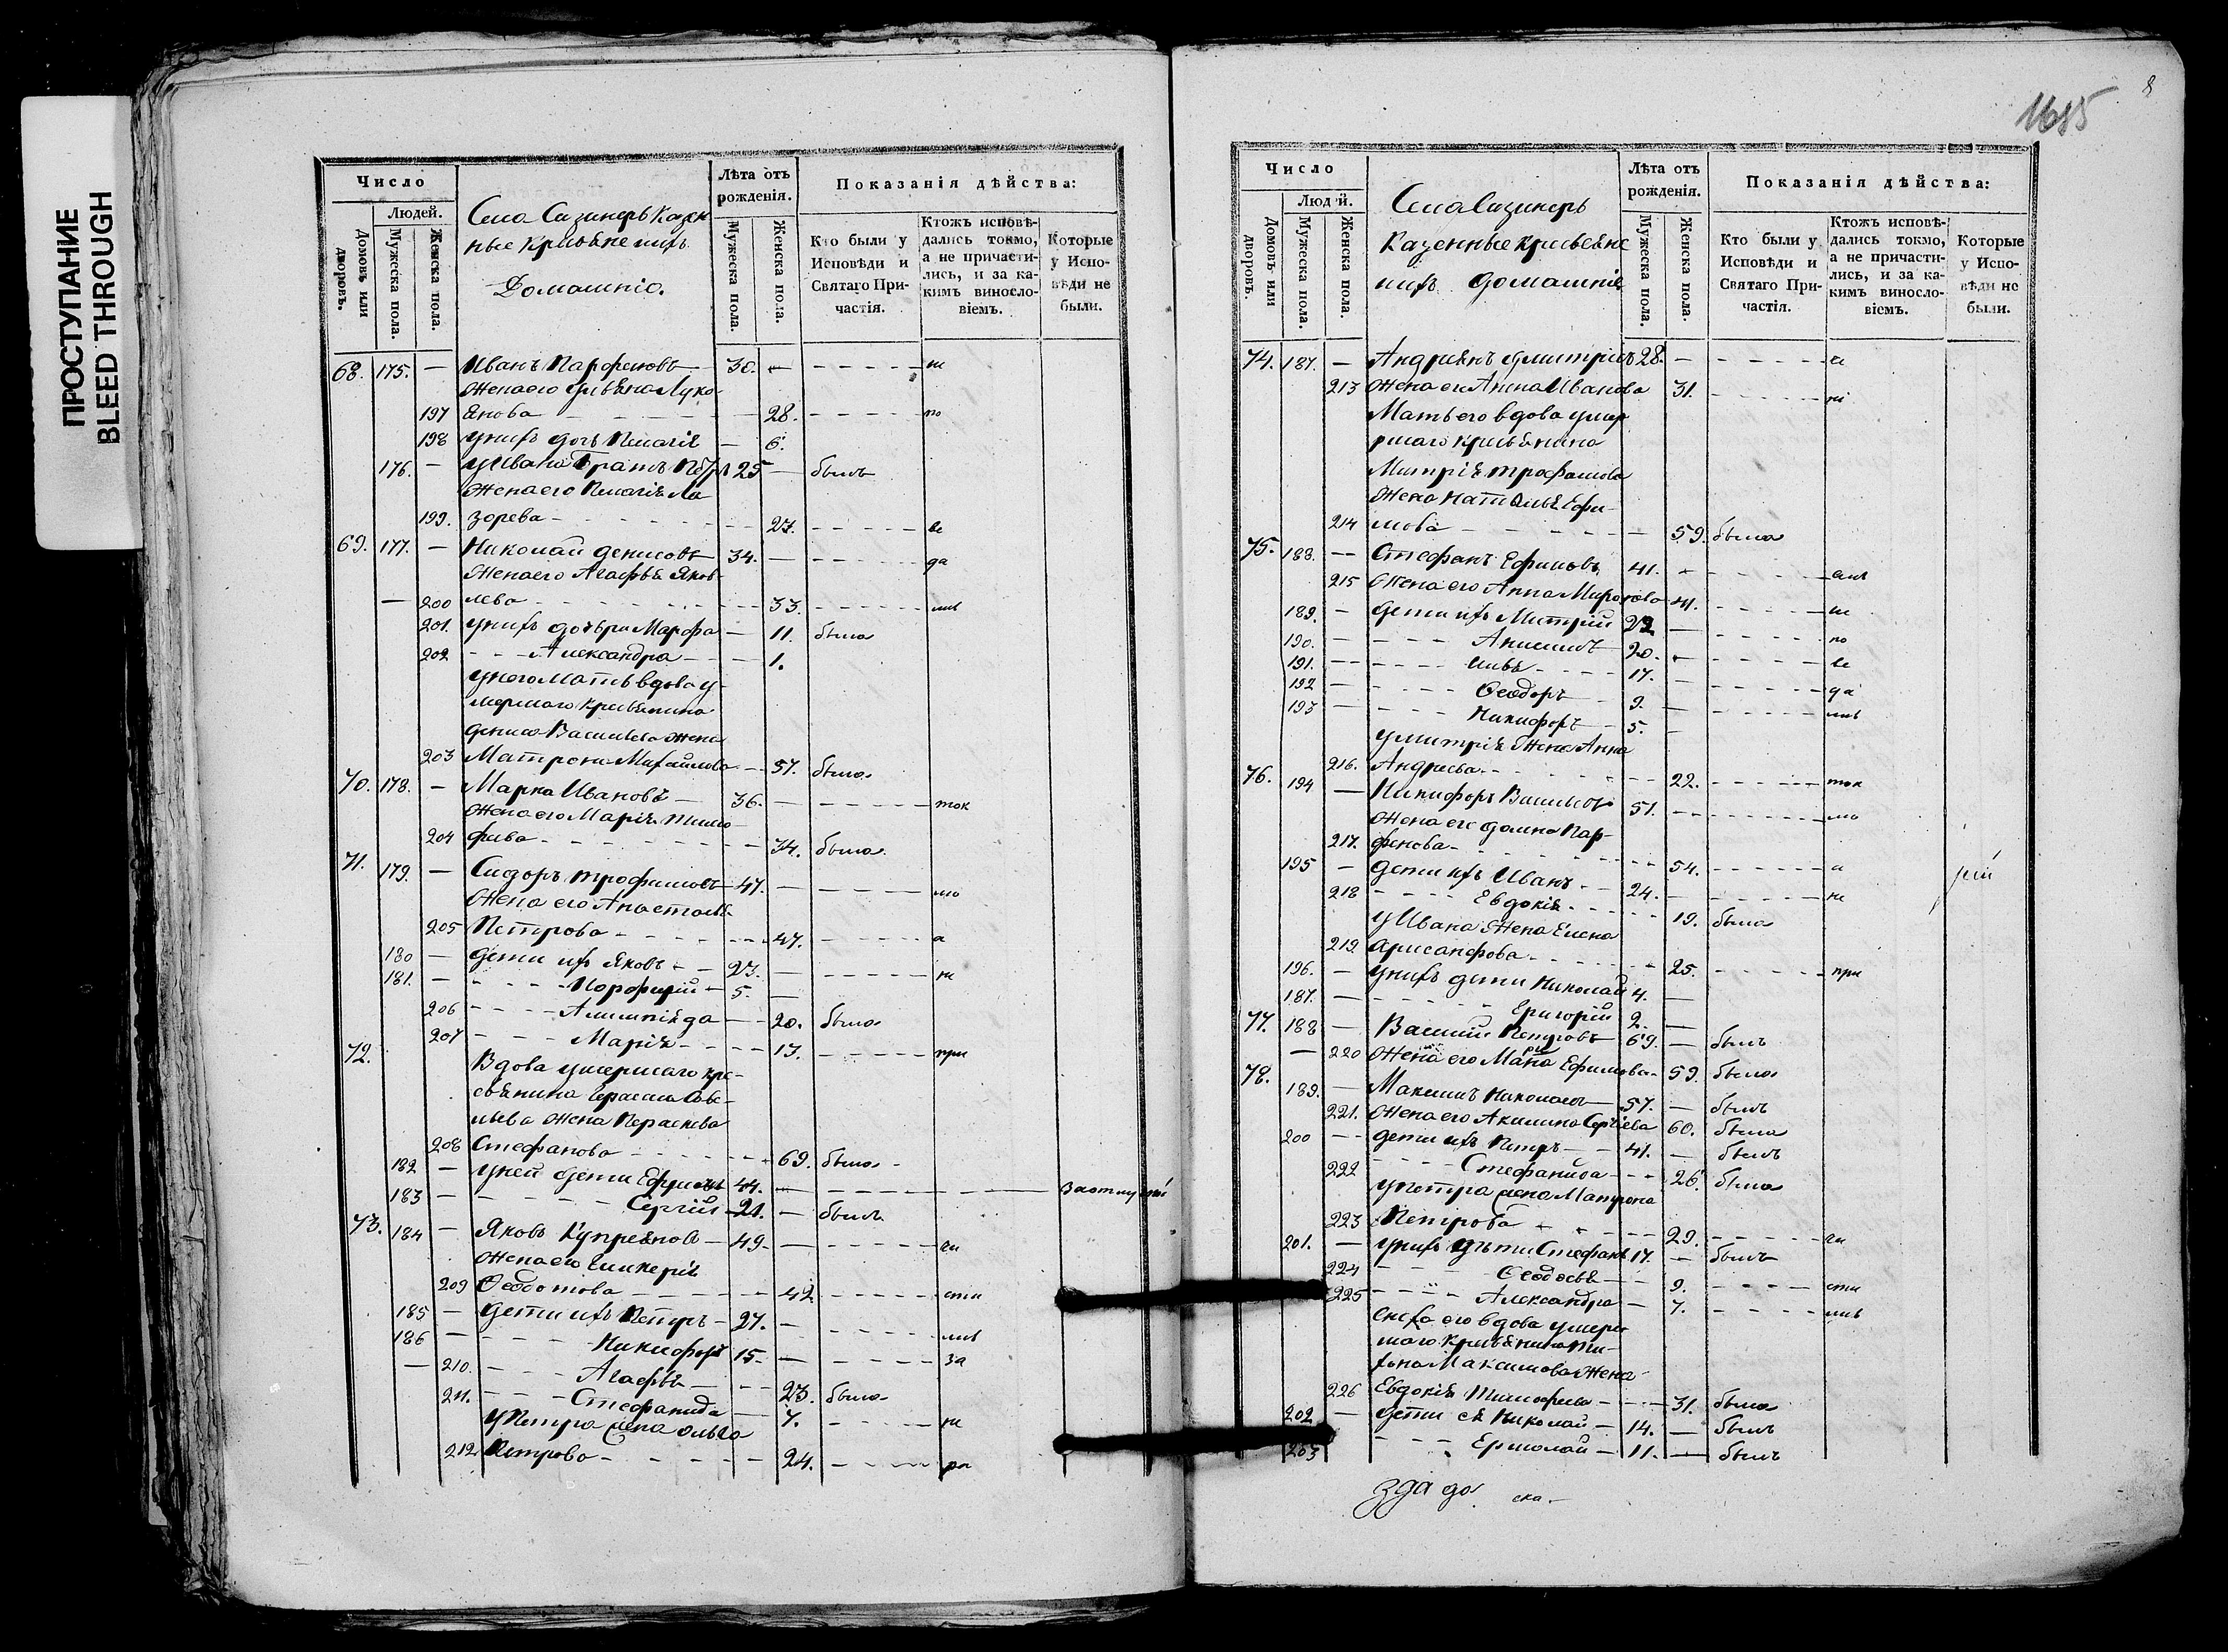 ПРОСТУПАНИЕ
BLEED THROUGH
Число
Людей.
Домовъ или дворовъ.
Мужеска пола.
Женска пола.
Села Сазинеръ Казен
ные крисьяне ихъ
Домашніе.
Лѣта отъ рожденія.
Мужеска пола.
Женска пола.
Показанія дѣйства:
Кто были у Исповѣди и Святаго Причастія.
Ктожъ исповѣдались токмо, а не причастились, и за какимъ винословіемъ.
Которые у Исповѣди не были.
68. 175. — Иванъ Парфеновъ — 30. — - - - - - не
Жена его Ульяна Луко
197 янова - - - - - 28. - - - - - по
198 унихъ дочь Пелагія — 6.
176. — уИвана братъ Петръ 25 — былъ
Жена его Пелагія Ла
199. зорева - - - - - - 27. - - - - - ве
69. 177. — Николай денисовъ — 34. — - - - - - да
Жена его Агафья Яков
— 200 лева - - - - - - 33. - - - - - ние
201. унихъ дочьри Марфа — 11. была
202 - - - Александра - - — 1.
унего мать вдова у
мершаго крисьянина
дениса Васильева жена
203 Матрона Михайлова - - 57. была
70. 178. — Марка Ивановъ — 36. — - - - - - ток
Жена его Марія Тимо
204 феева - - - - - - 34. была
71. 179. — Сидоръ трофимовъ — 47. — - - - - - мо
Жена его Анастасья
205 Петрова - - - - - - 47. - - - - - а
180 — дети ихъ Яковъ - - 23. — - - - - - не
181. — - - - - Порфирій — 5. —
206 - - - - Алимпіяда — - 20. была
207 - - - Марія - - - - 13. - - - - - при
72. Вдова умершаго кре
сьянина Герасима Саве
льева жена Параскева
208 Стефанова - - - - - - 69. была
182 — уней дети Ефимъ 44. — - - - - - заотлучкой
183 — - - - - - Сергій — 21. — былъ
73. 184 — Яковъ Купреяновъ — 49. — - - - - - чи
жена его Гликерія
209 Феодотова - - - - - - 42 - - - - - сти
185 — дети ихъ Петръ — 27. — - - - - - лиь
186 — - - - - Никифоръ 15 — - - - - - за
— 210. — - - - Агафья — - - 23. была
211. - - - Стефанида — 7. - - - - - не
уПетра жена ольга
212. Петрова - - - - - - 24. - - - - - ра
8
1685
Число
Людей.
Домовъ или дворовъ.
Мужеска пола.
Женска пола.
Села Сазинеръ
Казенные крисьяне
ихъ домашніе
Лѣта отъ рожденія.
Мужеска пола.
Женска пола.
Показанія дѣйства:
Кто были у Исповѣди и Святаго Причастія.
Ктожъ исповѣдались токмо, а не причастились, и за какимъ винословіемъ.
Которые у Исповѣди не были.
74. 187. — Андреянъ дмитріевъ 28. — - - - - - че
213 Жена его Анна Иванова 31. - - - - - ні
Мать его вдова умер
ршаго крисьянина
Митрія трофимова
жена Наталья Ефи
214 мова - - - - - 59. была
75. 188. — Стефанъ Ефимовъ 41. — - - - - - емъ
215 Жена его Анна Миронова 41. - - - - - не
189. — дети ихъ Митрій 22 — - - - - - по
190. — - - - - Анисимъ 20. — - - - - - ве
191. — - - - - Илья - - 17. — - - - - - да
192 — - - - - Феодоръ 9. — - - - - - лиь
193 — - - - - Никифоръ 5. —
умитрія жена Анна
216. Андреева - - - - - - 22. - - - - - ток
76. 194 — Никифоръ Васильевъ 51. - - - - - - мо
Жена его домна Пар
217. фенова - - - - - - 54. - - - - - а
195 — дети ихъ Иванъ - - 24. — - - - - - не
218 - - - Евдокія - - - - - 19. была
уИвана Жена Елена
219. Арисанфова - - - - - - 25. - - - - - при
196. — унихъ дети Николай 4. —
187. — - - - - - Григорій 2. —
77. 188 — Василій Петровъ — 69. — былъ
— 220 Жена его Марія Ефимова - 59. была
78. 189. — Максимъ Николаевъ — 57. — былъ
221. Жена его Акилина Сергіева 60. была
200 — дети ихъ Петръ — - 41. — былъ
222 - - - - Стефанида - - - 26. была
упетра жена Матрона
223 Петрова - - - - - 29. - - - - - чи
201. — унихъ дѣти Стефанъ 17. — былъ
224 - - - - Феодосья — - 9. - - - - - сти
225 - - - - Александра — 7. - - - - - лиь
сноха его вдова умер
шаго крисьянина Ти
хона Максимова жена
226 Евдокія Тимофеева - - - 31. была
202 — дети ея Николай — 14. — былъ
203 - - - - Ермолай — 11. — былъ